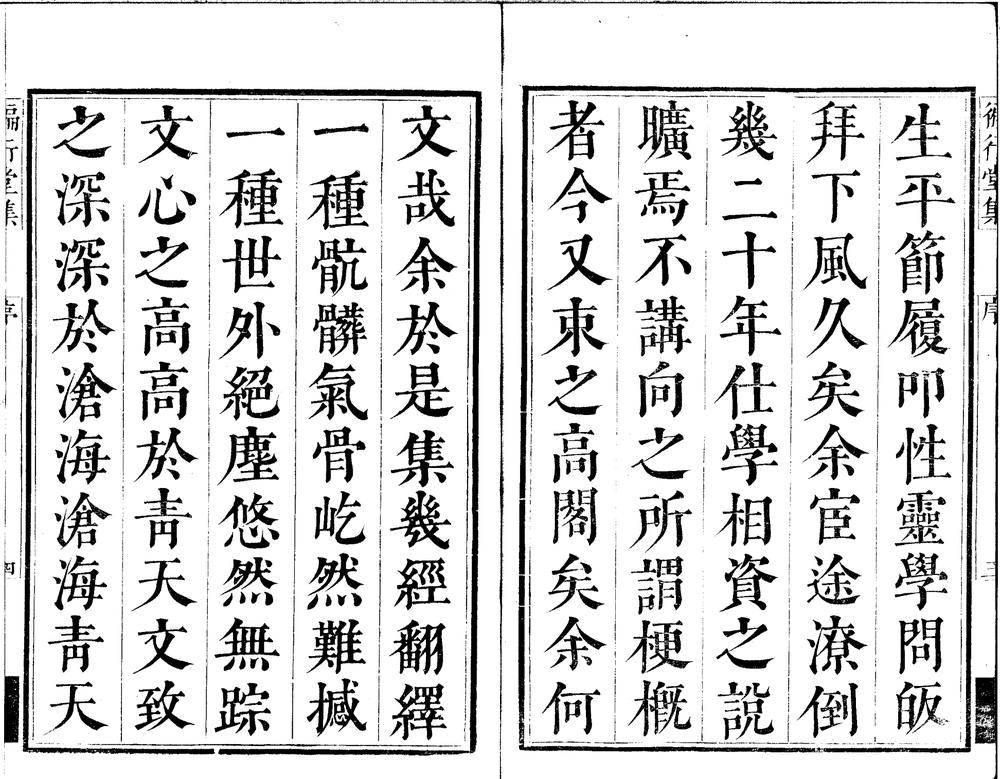 生平節履叩性靈學問皈
拜下風久矣余宦途潦倒
幾二十年仕學相資之說
曠焉不講向之所謂梗概
者今又束之高閣矣余何
文哉余於是集幾經翻繹
一種骯髒氣骨屹然難撼
一種世外絕塵悠然無踪
文心之高高於靑天文致
之深深於滄海滄海靑天
徧行堂集 序 三
徧行堂集 序 四